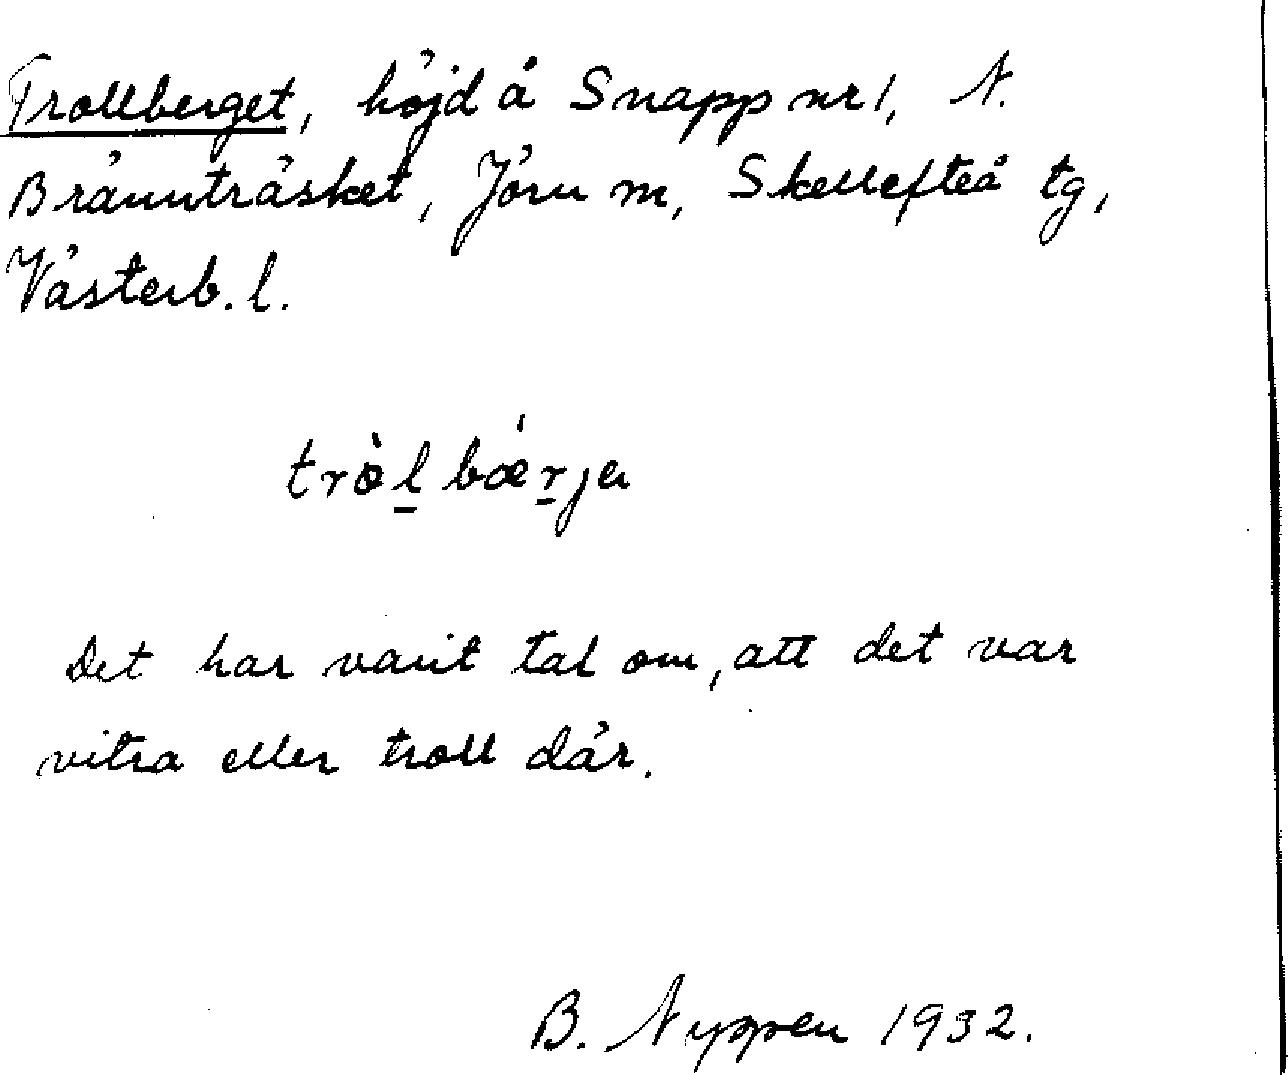 Trollberget, höjd å Snapp nr 1, N.
Brännträsket, Jörn m, Skellefteå tg,
Västerb. l.
tròl bǽrjen
Det har varit tal om, att det var
vitra eller troll där.
B. Nyppen 1932.